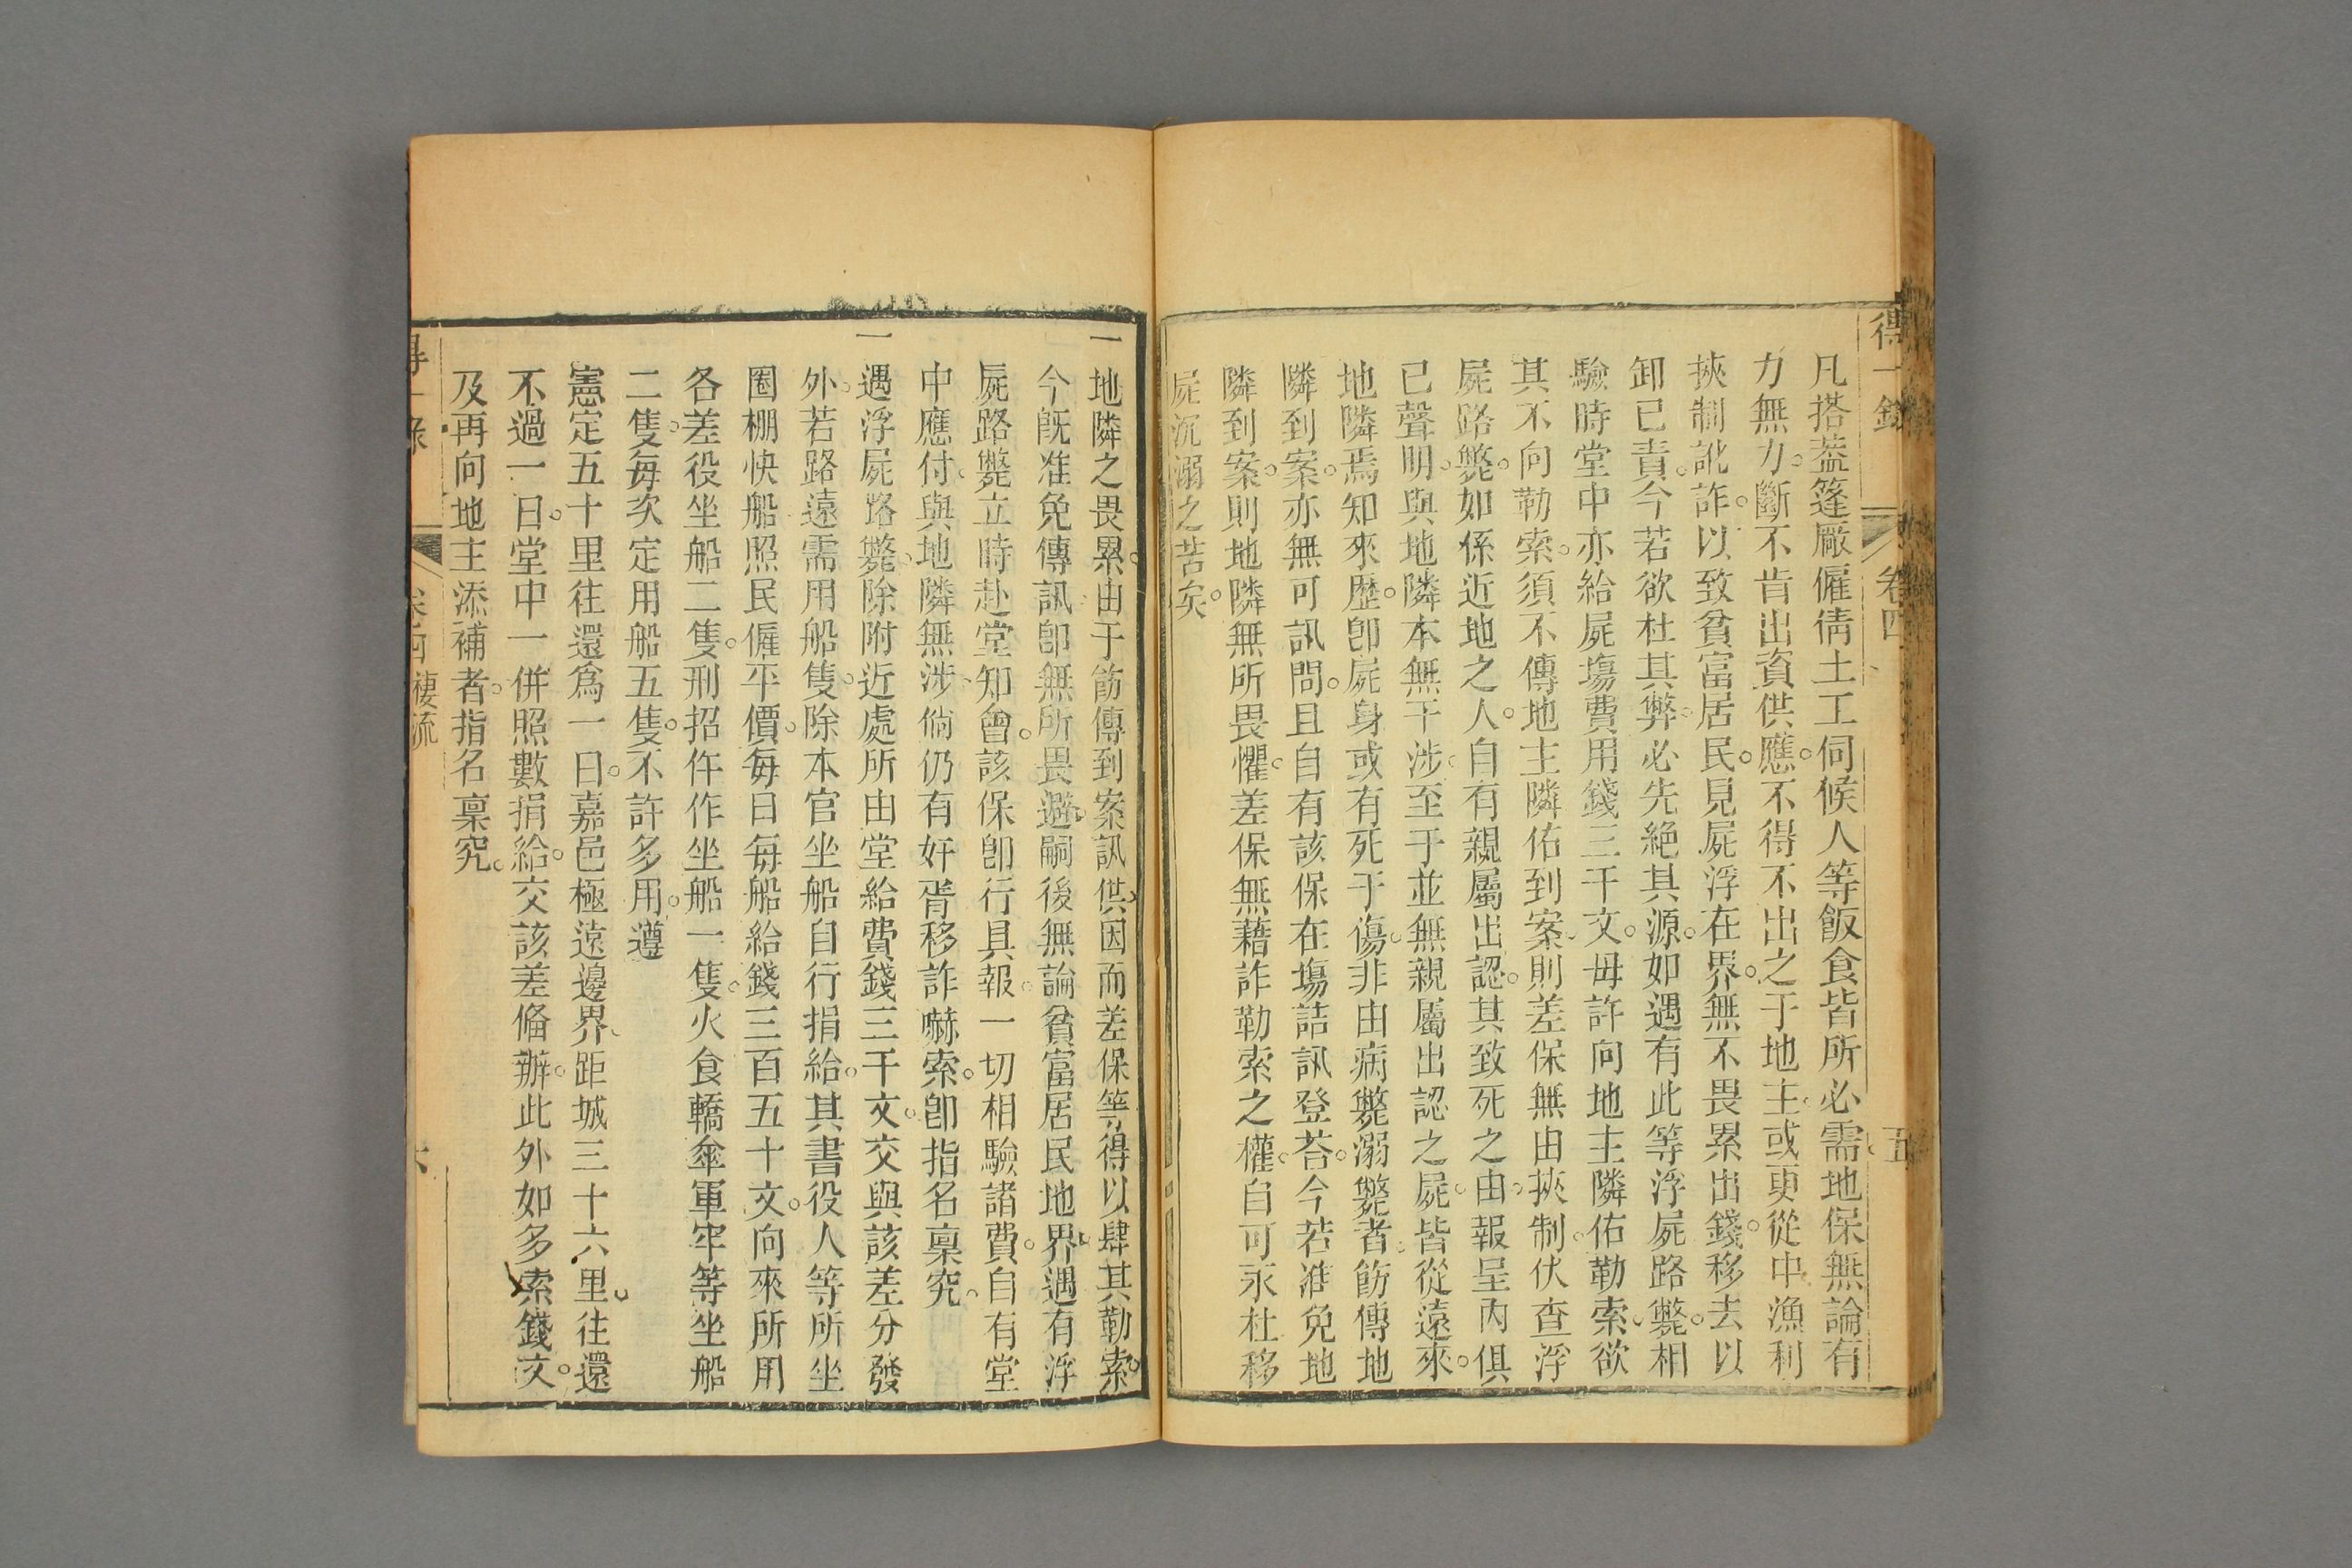 得一錄 卷四 五
凡搭葢篷厰僱倩土工伺候人等飯食皆所必需地保無論有
力無力。斷不肯出資供應。不得不出之于地主。或更從中漁利
挾制訛詐。以致貧富居民。見屍浮在界。無不畏累出錢。移去以
卸已責。今若欲杜其弊。必先絕其源。如遇有此等浮屍路斃。相
驗時堂中亦給屍塲費用錢三千文。毋許向地主隣佑勒索。欲
其不向勒索。須不傳地主隣佑到案。則差保無由挾制。伏查浮
屍路斃。如係近地之人。自有親屬出認。其致死之由。報呈內俱
已聲明。與地隣本無干涉。至于並無親屬出認之屍。皆從遠來。
地隣焉知來歷。卽屍身或有死于傷。非由病斃溺斃者。飭傳地
隣到案。亦無可訊問。且自有該保在塲詰訊登荅。今若准免地
隣到案。則地隣無所畏懼。差保無藉詐勒索之權。自可永杜移
屍沉溺之苦矣。
一地隣之畏累。由于飭傳到案訊供。因而差保等得以肆其勒索。
今旣准免傳訊。卽無所畏避。嗣後無論貧富居民地界。遇有浮
屍路斃。立時赴堂知會。該保卽行具報。一切相驗諸費。自有堂
中應付。與地隣無涉。倘仍有奸胥移詐嚇索。卽指名稟究。
一遇浮屍路斃。除附近處所由堂給費錢三千文。交與該差分發
外。若路遠需用船隻。除本官坐船自行捐給。其書役人等所坐
圈棚快船照民僱平價。每日每船給錢三百五十文。向來所用
各差役坐船二隻。刑招仵作坐船一隻。火食轎傘軍牢等坐船
二隻。每次定用船五隻。不許多用。遵
憲定五十里往還爲一日。嘉邑極遠邊界。距城三十六里。往還
不過一日。堂中一併照數捐給。交該差俻辦。此外如多索錢文。
及再向地主添補者。指名稟究。
得一錄 卷四 棲流 六